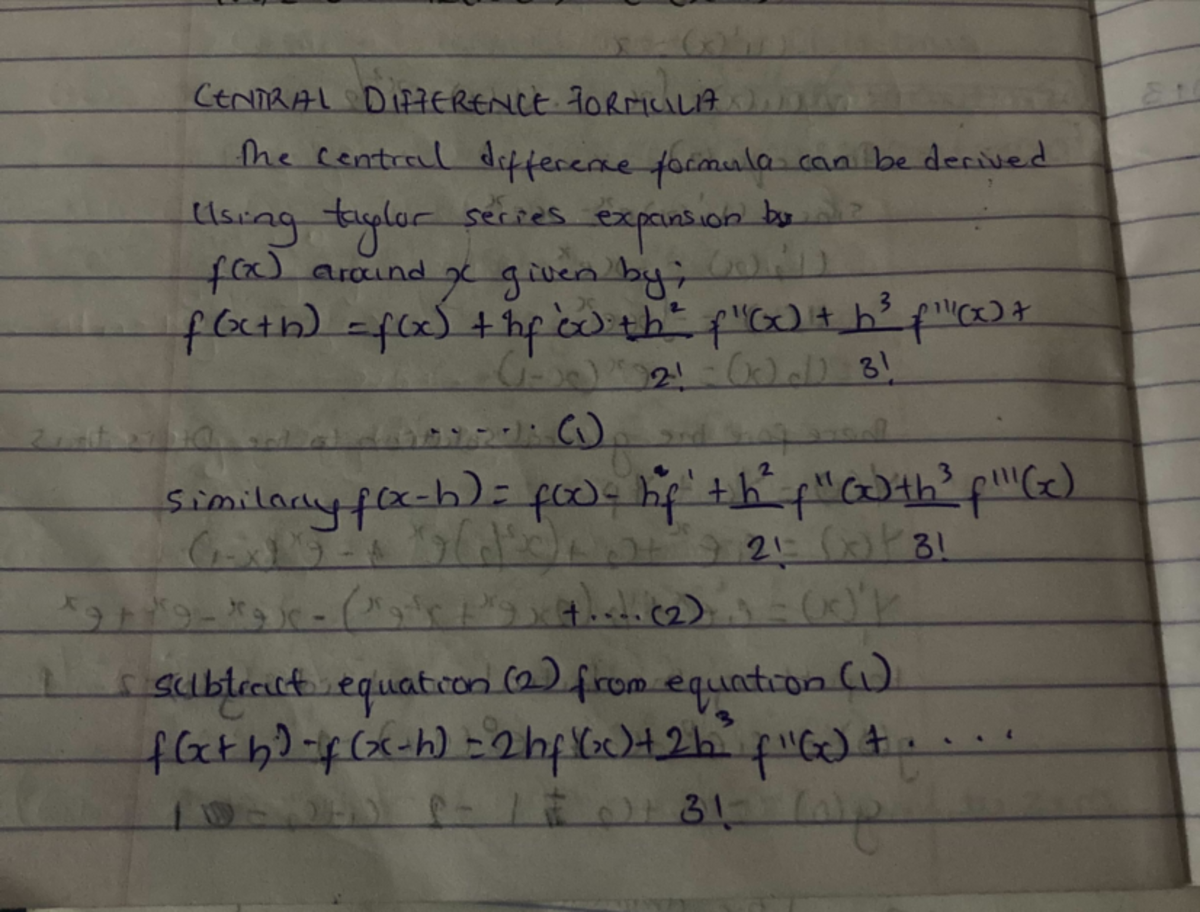 CENTRAL DIFFERENCE FORMULA
The central difference formula can be derived
Using taylor series expansion by
f(x) around x given by;
f(x+h) = f(x) + hf'(x) + h² f''(x) + h³ f'''(x) +
2! 3!
...... (1)
similarly f(x-h) = f(x) - hf' + h² f''(x) + h³ f'''(x)
2! 3!
+.... (2)
subtract equation (2) from equation (1)
f(x+h) - f(x-h) = 2hf'(x) + 2h³ f''(x) + ....
3!